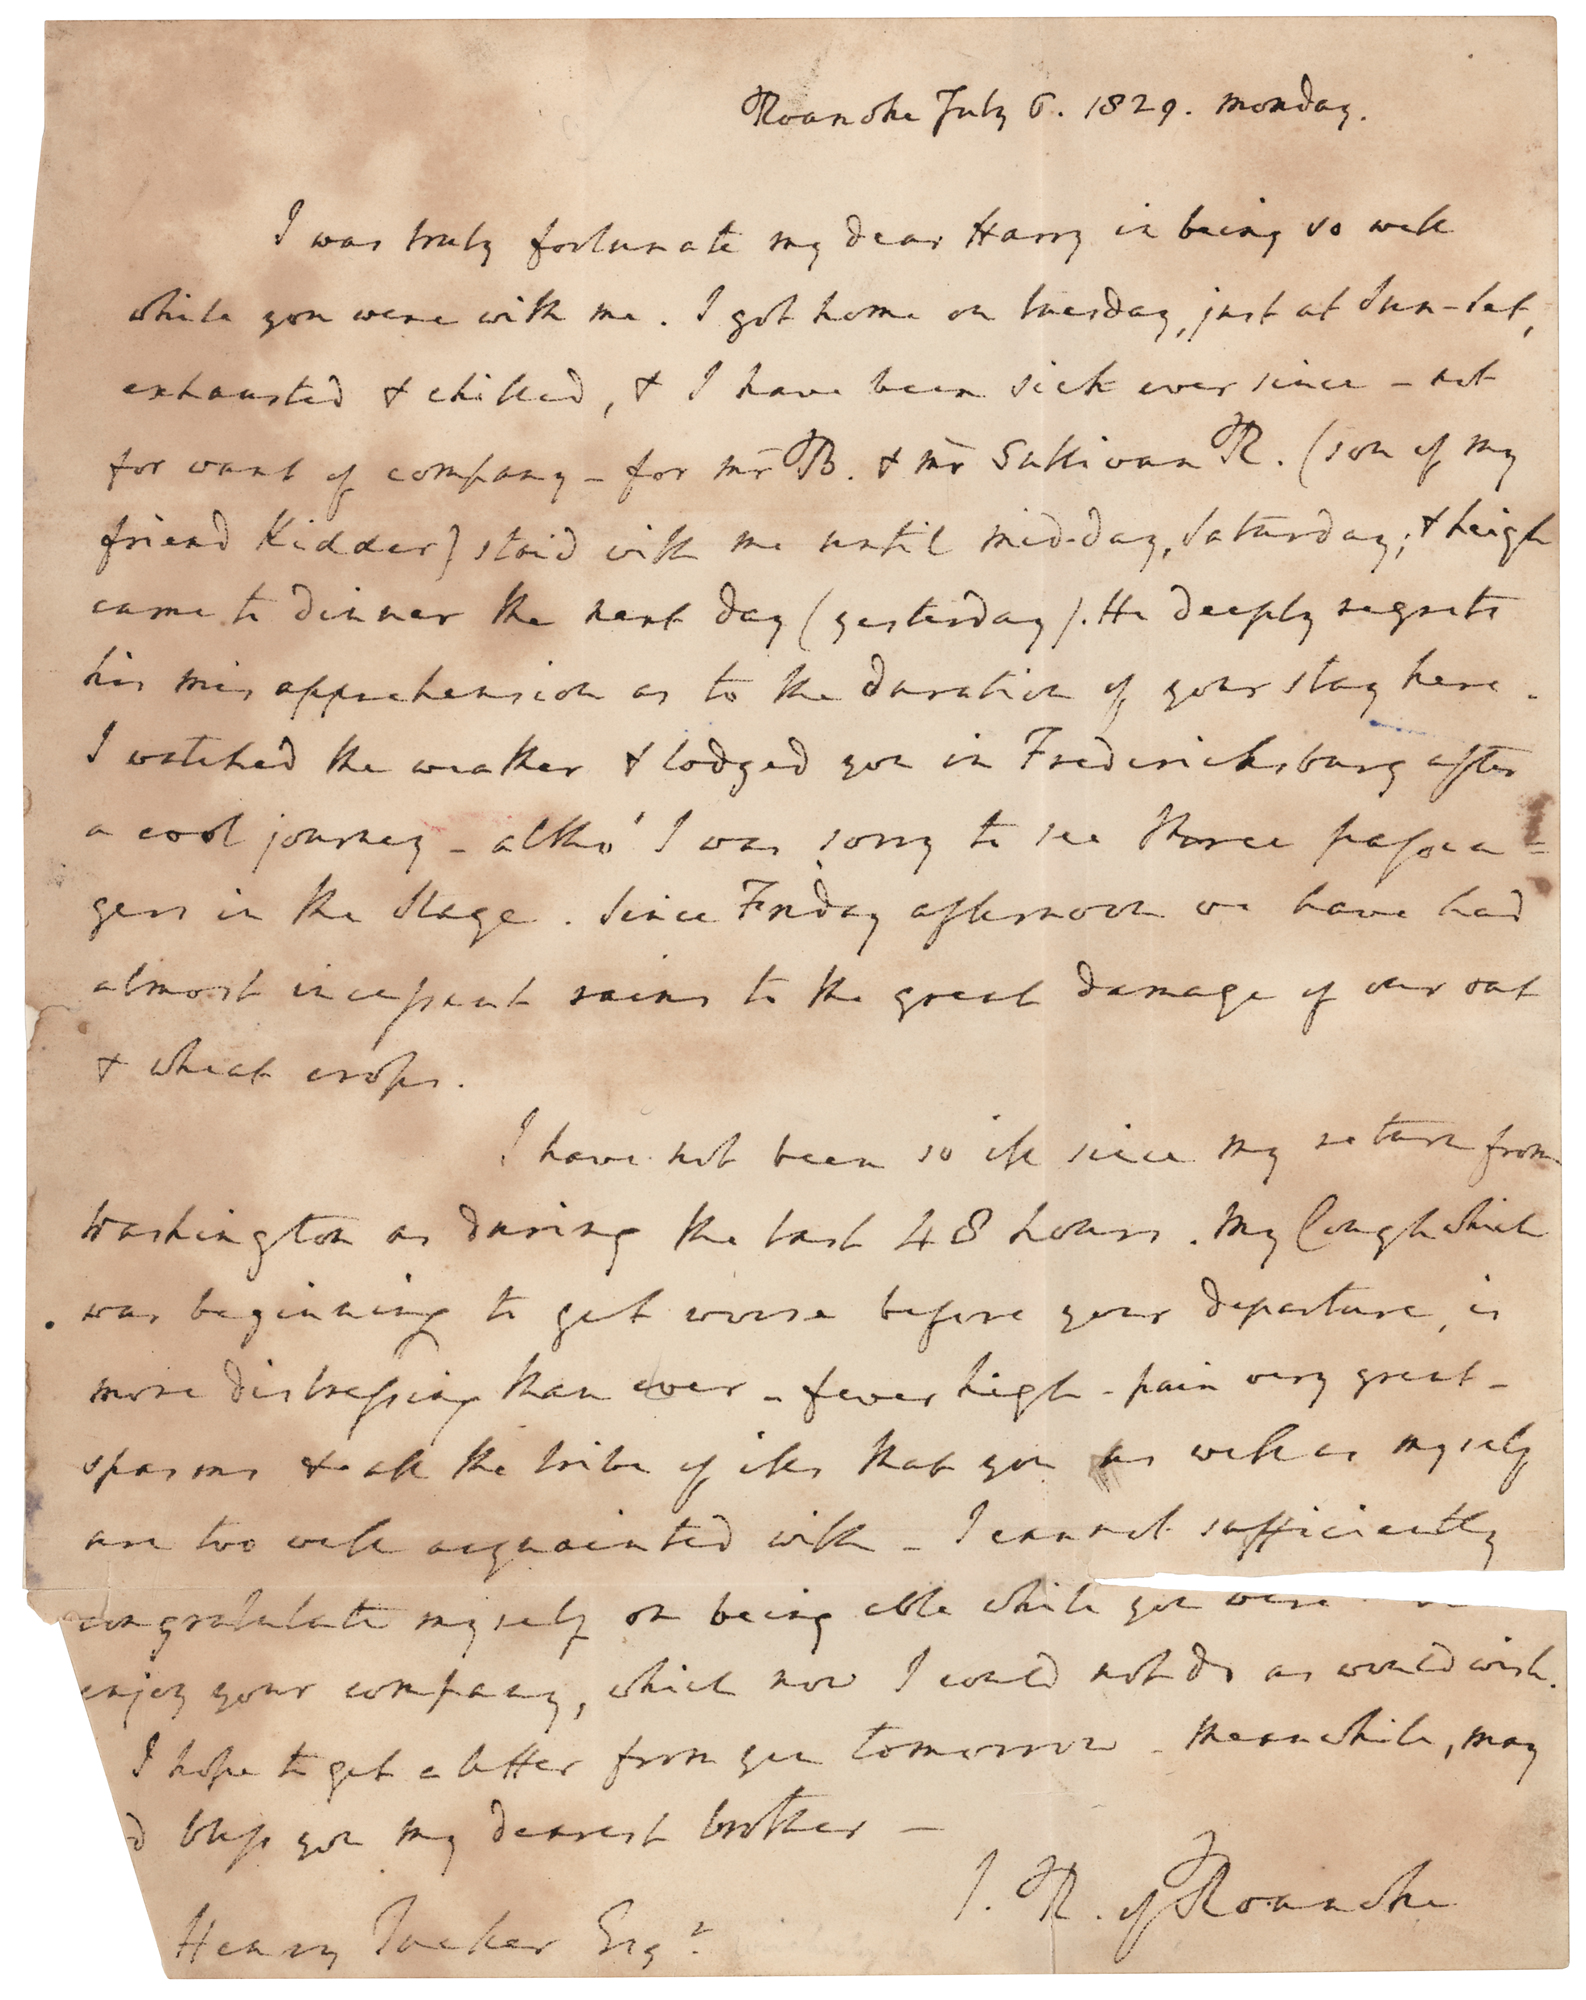 Roanoke July 6. 1829. Monday.
I was truly fortunate my dear Harry in being so well
while you were with me. I got home on tuesday, just at Sun-set,
exhausted & chilled, & I have been sick ever since - not
for want of company - for Mr B. & Mr Sullivan R. (son of my
friend Kidder) staid with me until mid-day, Saturday; & Leigh
came to dinner the next day (yesterday). He deeply regrets
his misapprehension as to the duration of your stay here.
I watched the weather & lodged you in Fredericksburg after
a cool journey - altho' I was sorry to see three passen=
gers in the Stage. Since Friday afternoon we have had
almost incessant rains to the great damage of our oat
& wheat crops.
I have not been so ill since my return from
Washington as during the last 48 hours. My Cough which
was beginning to get worse before your departure, is
more distressing than ever - fever high - pain very great -
spasms & all the tribe of ills that you as well as myself
are too well acquainted with - I cannot sufficiently
congratulate myself on being able while you were
enjoy your company, which now I could not do as would wish.
I hope to get a letter from you tomorrow - Meanwhile, may
d bless you my dearest brother -
J. R. of Roanoke
Henry Tucker Esqr